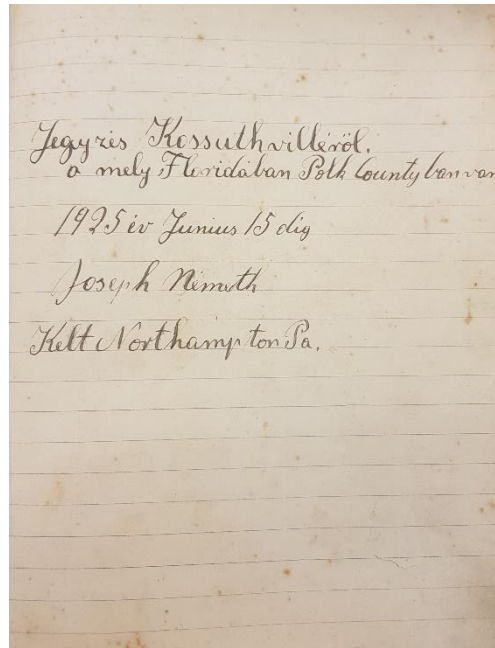 Jegyzés Kossuthvilléröl.
a mely Floridában Polk County ban van
1925 év Junius 15 dig
Joseph Németh
Kelt Northampton Pa.